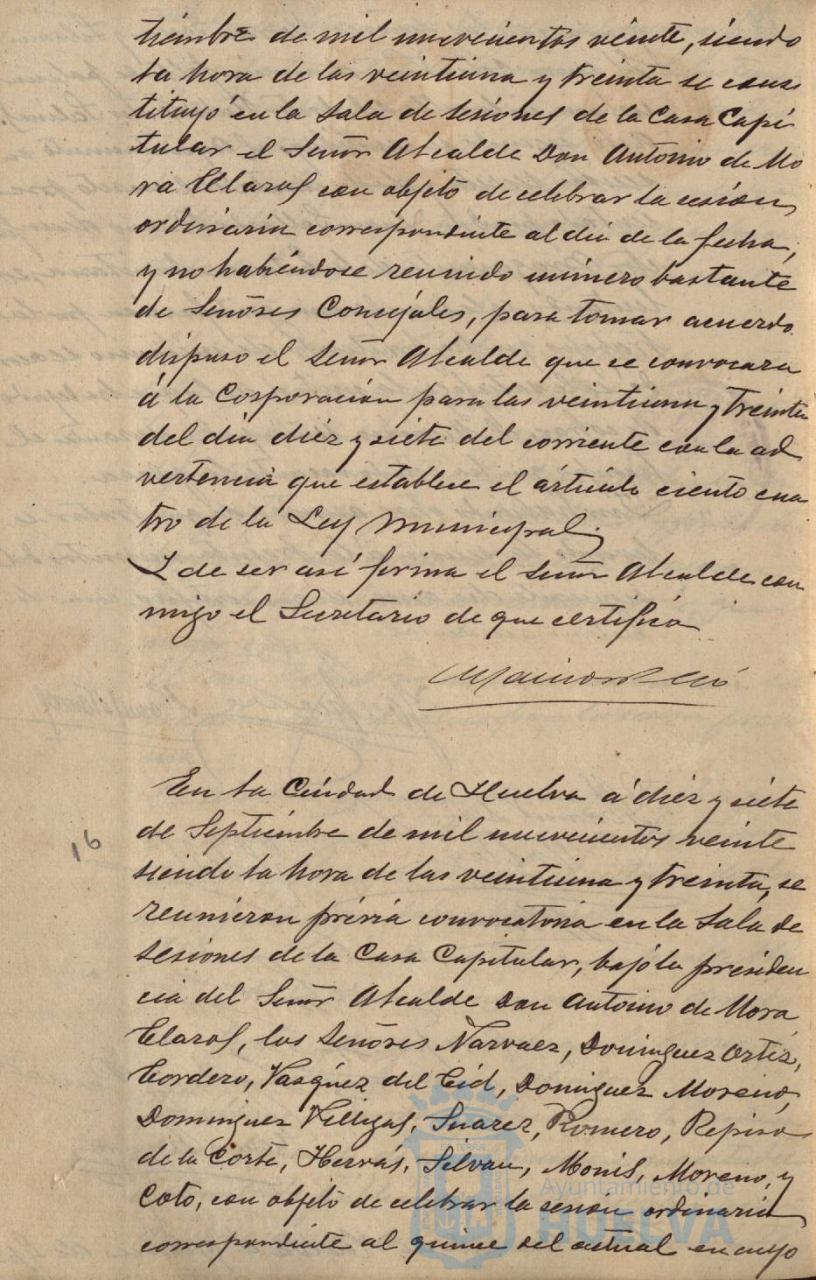 tiembre de mil nuevecientos veinte, siendo
la hora de las veintiuna y treinta se cons
tituyó en la Sala de sesiones de la Casa Capi
tular el Señor Alcalde Don Antonio de Mo
ra Claros con objeto de celebrar la sesión
ordinaria correspondiente al dia de la fecha,
y no habiéndose reunido número bastante
de Señores Concejales, para tomar acuerdo
dispuso el Señor Alcalde que se convocara
á la Corporación para las veintiuna y treinta
del dia diez y siete del corriente con la ad
vertencia que establece el artículo ciento cua
tro de la Ley Municipal.
Y de ser así firma el Señor Alcalde con
migo el Secretario de que certifico
16
En la Ciudad de Huelva á diez y siete
de Septiembre de mil nuevecientos veinte
siendo la hora de las veintiuna y treinta, se
reunieron prévia convocatoria en la Sala de
sesiones de la Casa Capitular, bajo la presiden
cia del Señor Alcalde Don Antonio de Mora
Claros, los Señores Narvaez, Dominguez Ortiz,
Cordero, Vasquez del Cid, Dominguez Moreno,
Dominguez Villegas, Suarez, Romero, Repiso
de la Corte, Hervás, Silvan, Monis, Moreno, y
Coto, con objeto de celebrar la sesion ordinaria
correspondiente al quince del actual en cuyo
Ayuntamiento de
HUELVA